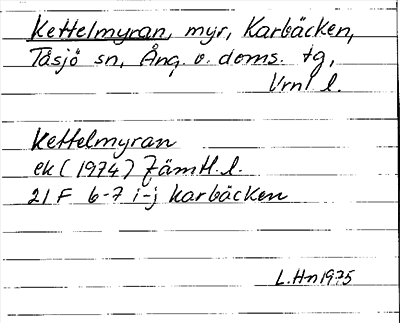 Kettelmyran, myr, Karbäcken,
Tåsjö sn, Ång. v. doms. tg,
Vrnl l.
Kettelmyran
ek (1974) Jämtl. l.
21 F 6-7 i-j Karbäcken
L. Hn 1975